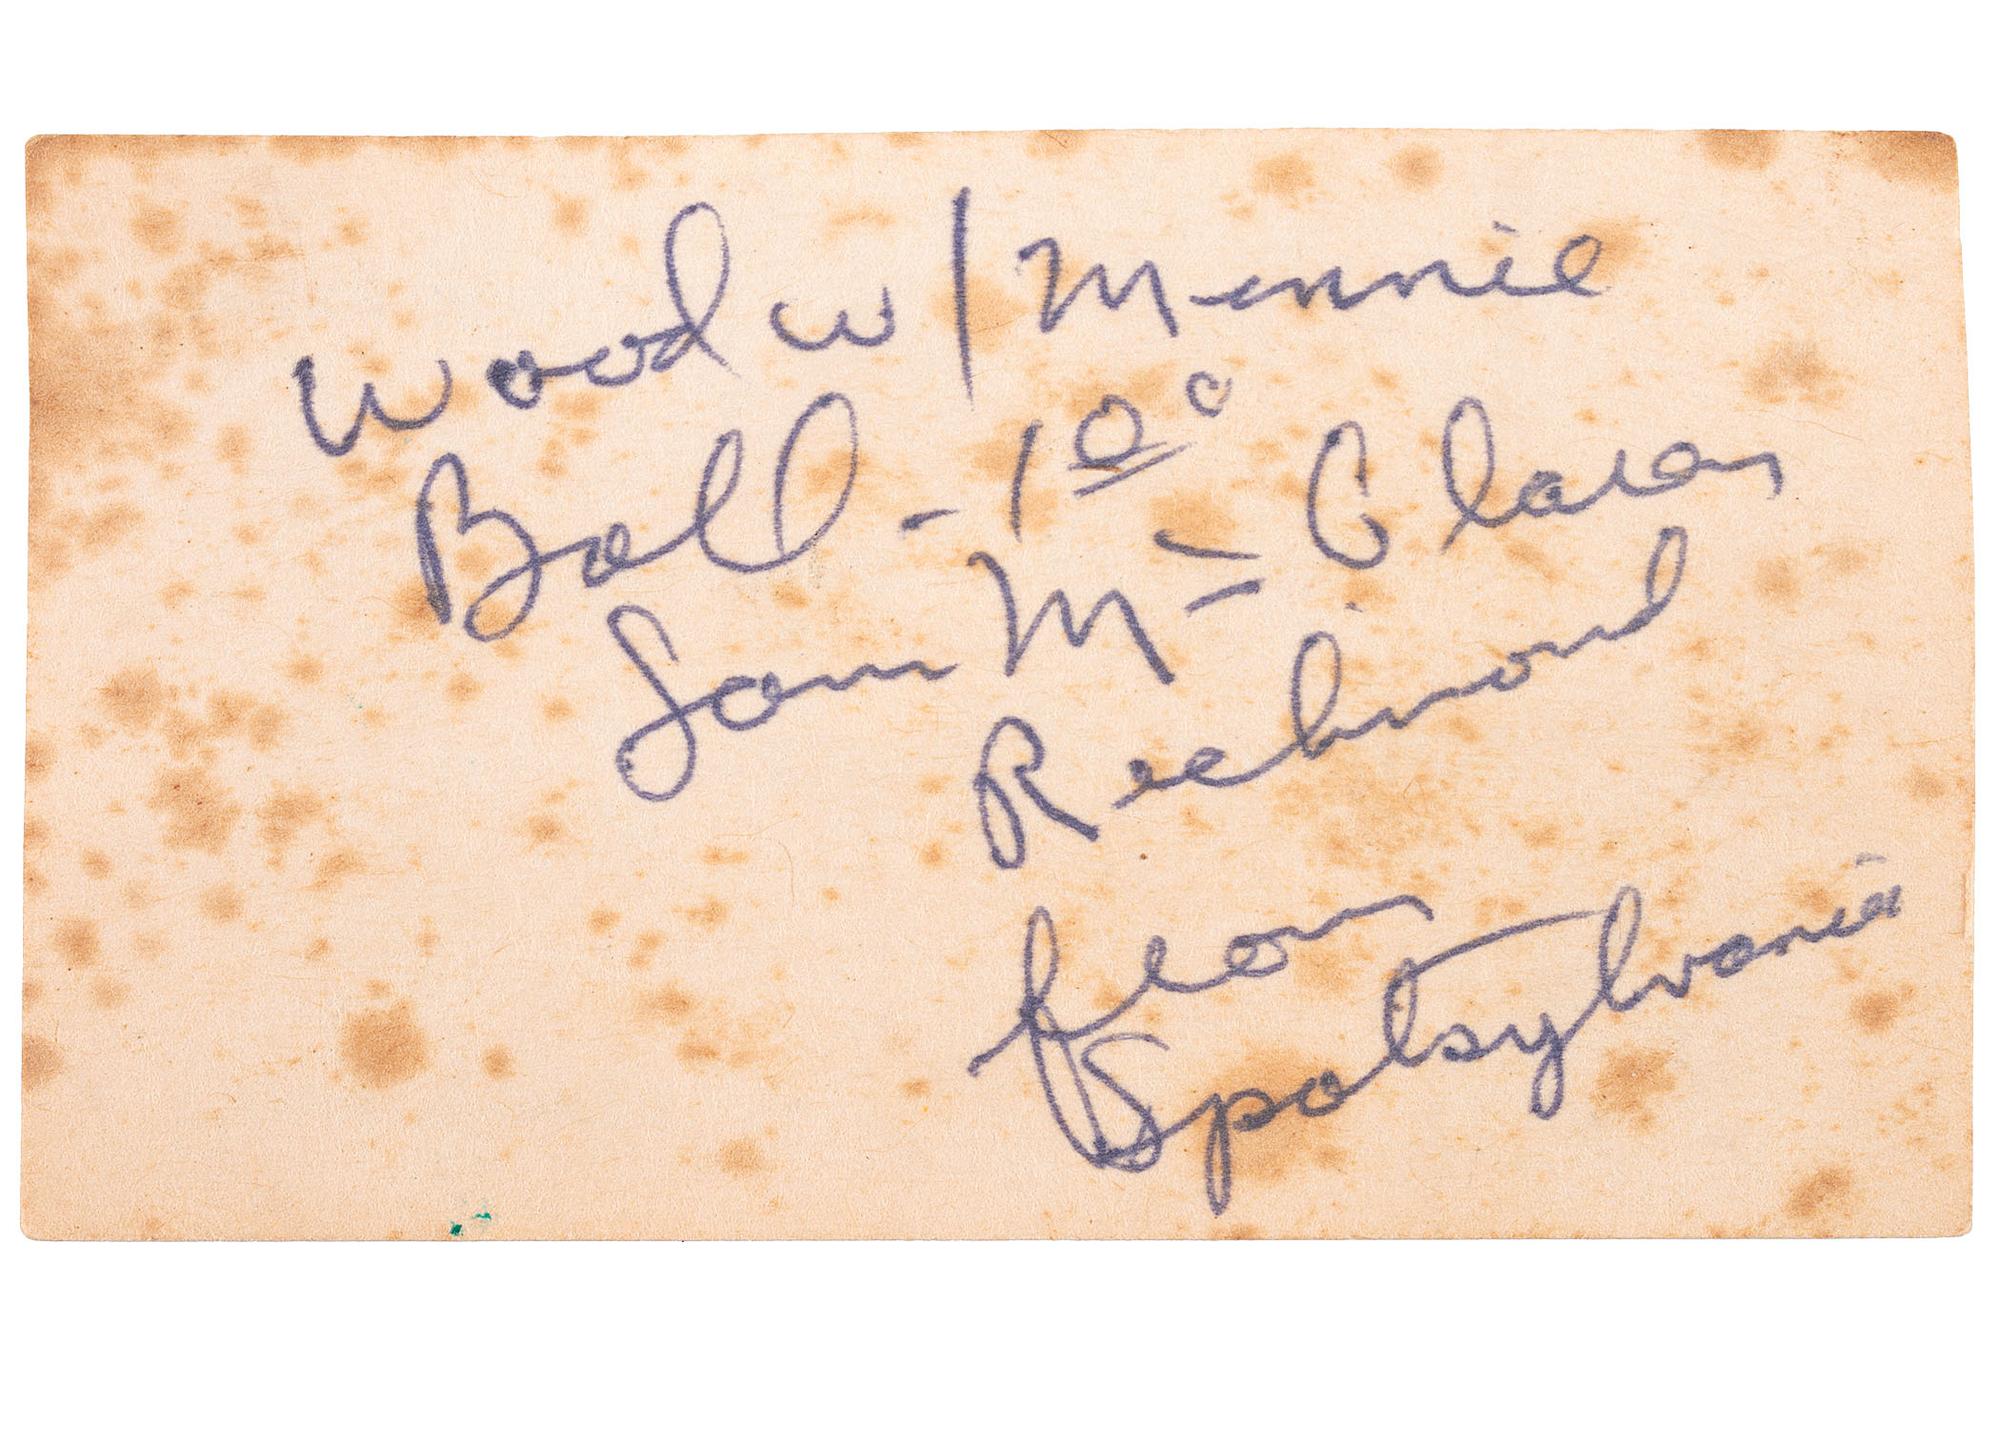 Wood w/ Minnie
Ball - 1 00
Sam Mc Claren
Richmond
from
Spotsylvania